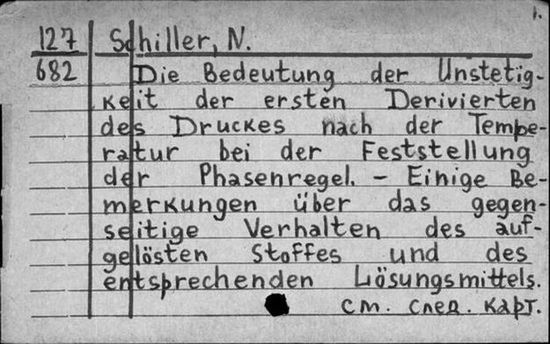 1.
127 Schiller, N.
682 Die Bedeutung der Unstetig-
keit der ersten Derivierten
des Druckes nach der Tempe-
ratur bei der Feststellung
der Phasenregel. – Einige Be-
merkungen über das gegen-
seitige Verhalten des auf-
gelösten Stoffes und des
entsprechenden Lösungsmittels.
см. след. карт.